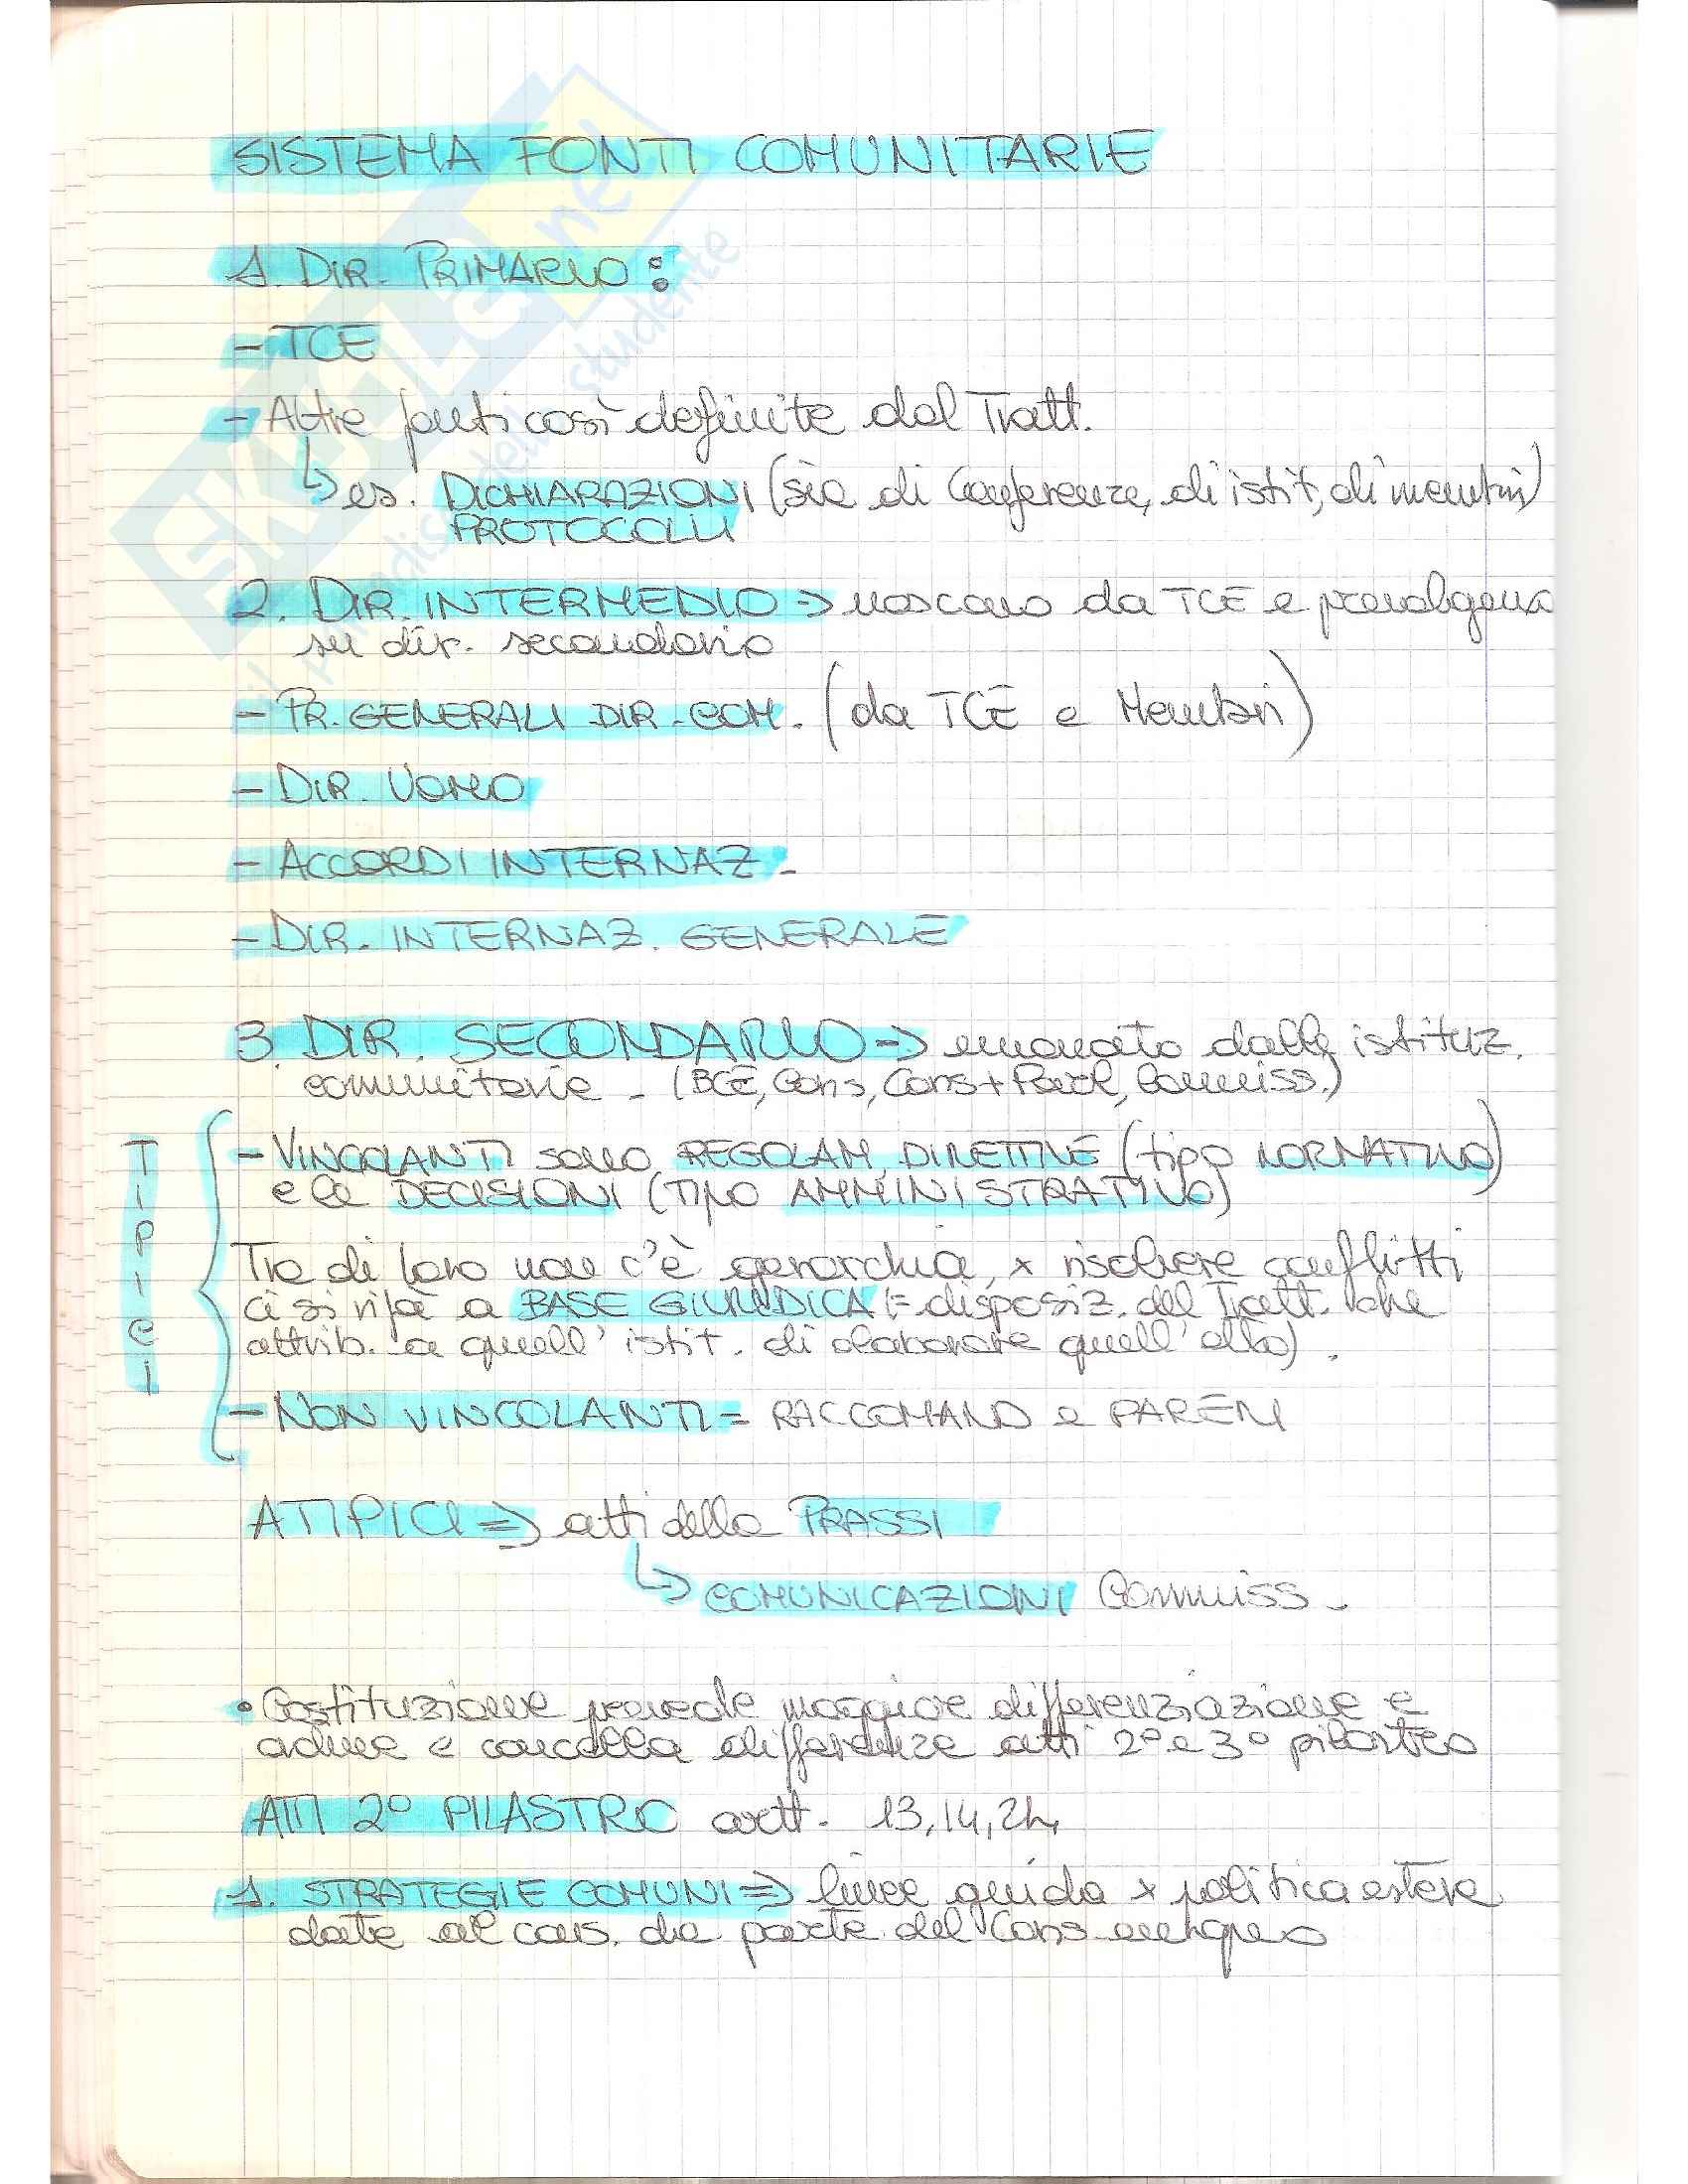 SISTEMA FONTI COMUNITARIE
1. DIR. PRIMARIO:
- TCE
- Altre fonti così definite dal Tratt.
↳ es. DICHIARAZIONI (sia di Conferenze, di istit, di membri)
PROTOCOLLI
2. DIR. INTERMEDIO => nascono da TCE e prevalgono
su dir. secondario
- PR. GENERALI DIR. COM. (da TCE e Membri)
- DIR. UOMO
- ACCORDI INTERNAZ.
- DIR. INTERNAZ. GENERALE
3. DIR. SECONDARIO => emanato dalle istituz.
comunitarie - (BCE, Cons, Cons + Parl, Commiss.)
TIPICI
- VINCOLANTI sono REGOLAM, DIRETTIVE (tipo NORMATIVO)
e le DECISIONI (TIPO AMMINISTRATIVO)
Tra di loro non c'è gerarchia, x risolvere conflitti
ci si rifà a BASE GIURIDICA (= disposiz. del Tratt. che
attrib. a quell'istit. di elaborare quell'atto).
- NON VINCOLANTI = RACCOMAND e PARERI
ATIPICI => atti della PRASSI
↳ COMUNICAZIONI Commiss.
• Costituzione prevede maggiore differenziazione e
e cancella differenze atti 2° e 3° pilastro
ATTI 2° PILASTRO artt. 13, 14, 24
1. STRATEGIE COMUNI => linee guida x politica estera
date al cons. da parte del Cons europeo
SKUOLA.net
il paradiso dello studente